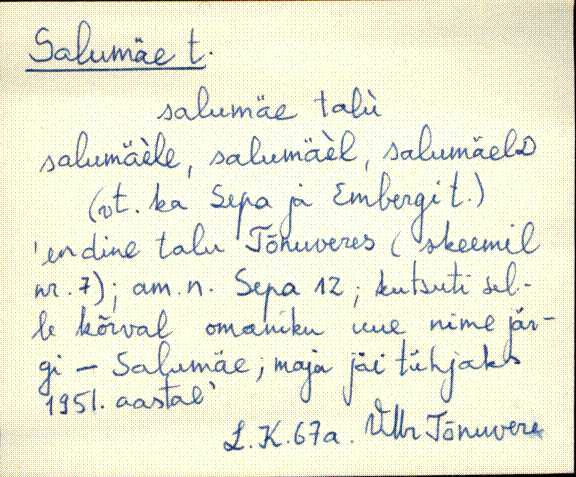 Salumäe t.
salumäe talù
salumäèle, salumäèl, salumäelD
(vt. ka Sepa ja Embergi t.)
'endine talu Tõnuveres (skeemil
nr. 7); am. n. Sepa 12; kutsuti sel-
le kõrval omaniku uue nime jär-
gi – Salumäe; maja jäi tühjaks
1951. aastal'
L.K. 67a. Tõnuvere